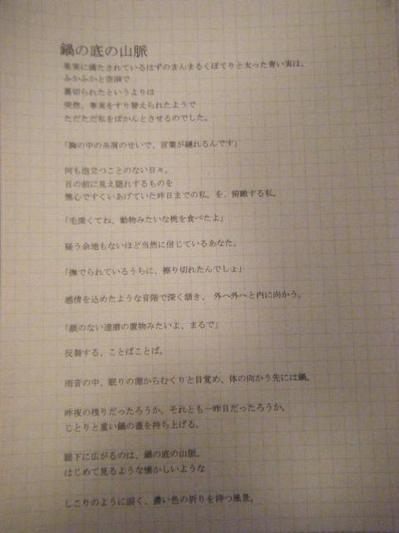 鍋の底の山脈
果実に満たされているはずのまんまるくぽてりと太った青い実は、
ふかふかと空洞で
裏切られたというよりは
突然、事実をすり替えられたようで
ただただ私をぽかんとさせるのでした。
「胸の中の糸屑のせいで、言葉が縺れるんです」
何も泡立つことのない日々。
目の前に見え隠れするものを
懐心ですくいあげていた昨日までの私、を、俯瞰する私。
「毛深くてね、動物みたいな桃を食べたよ」
疑う余地もないほど当然に信じているあなた。
「撫でられているうちに、擦り切れたんでしょ」
感情を込めたような音階で深く頷き、外へ外へと内に向かう。
「顔のない達磨の置物みたいよ、まるで」
反芻する、ことばことば。
雨音の中、眠りの淵からむくりと目覚め、体の向かう先には鍋。
昨夜の残りだったろうか、それとも一昨日だったろうか。
じとりと重い鍋の蓋を持ち上げる。
眼下に広がるのは、鍋の底の山脈。
はじめて見るような懐かしいような
しこりのように固く、濃い色の祈りを待つ風景。